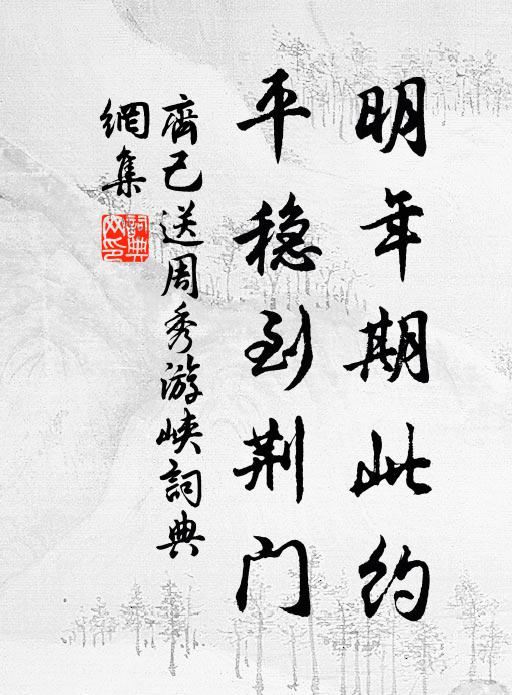 明年期此约
平稳到荆门
齊己送周秀游峡詞典
網集
詞典
网印